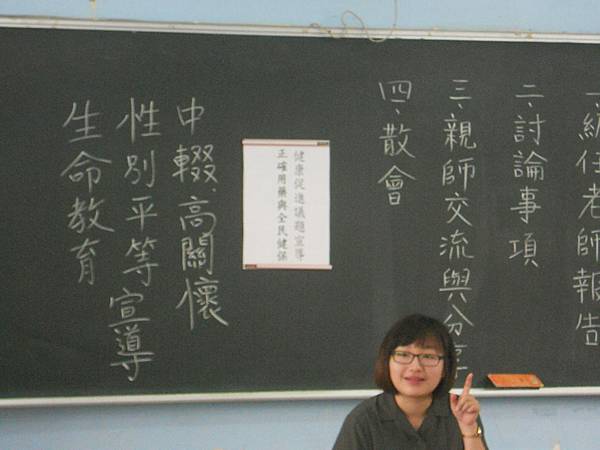 一、級任老師報告
二、討論事項
三、親師交流與分享
四、散會
健康促進議題宣導
正確用藥與全民健保
中輟、高關懷
性別平等宣導
生命教育